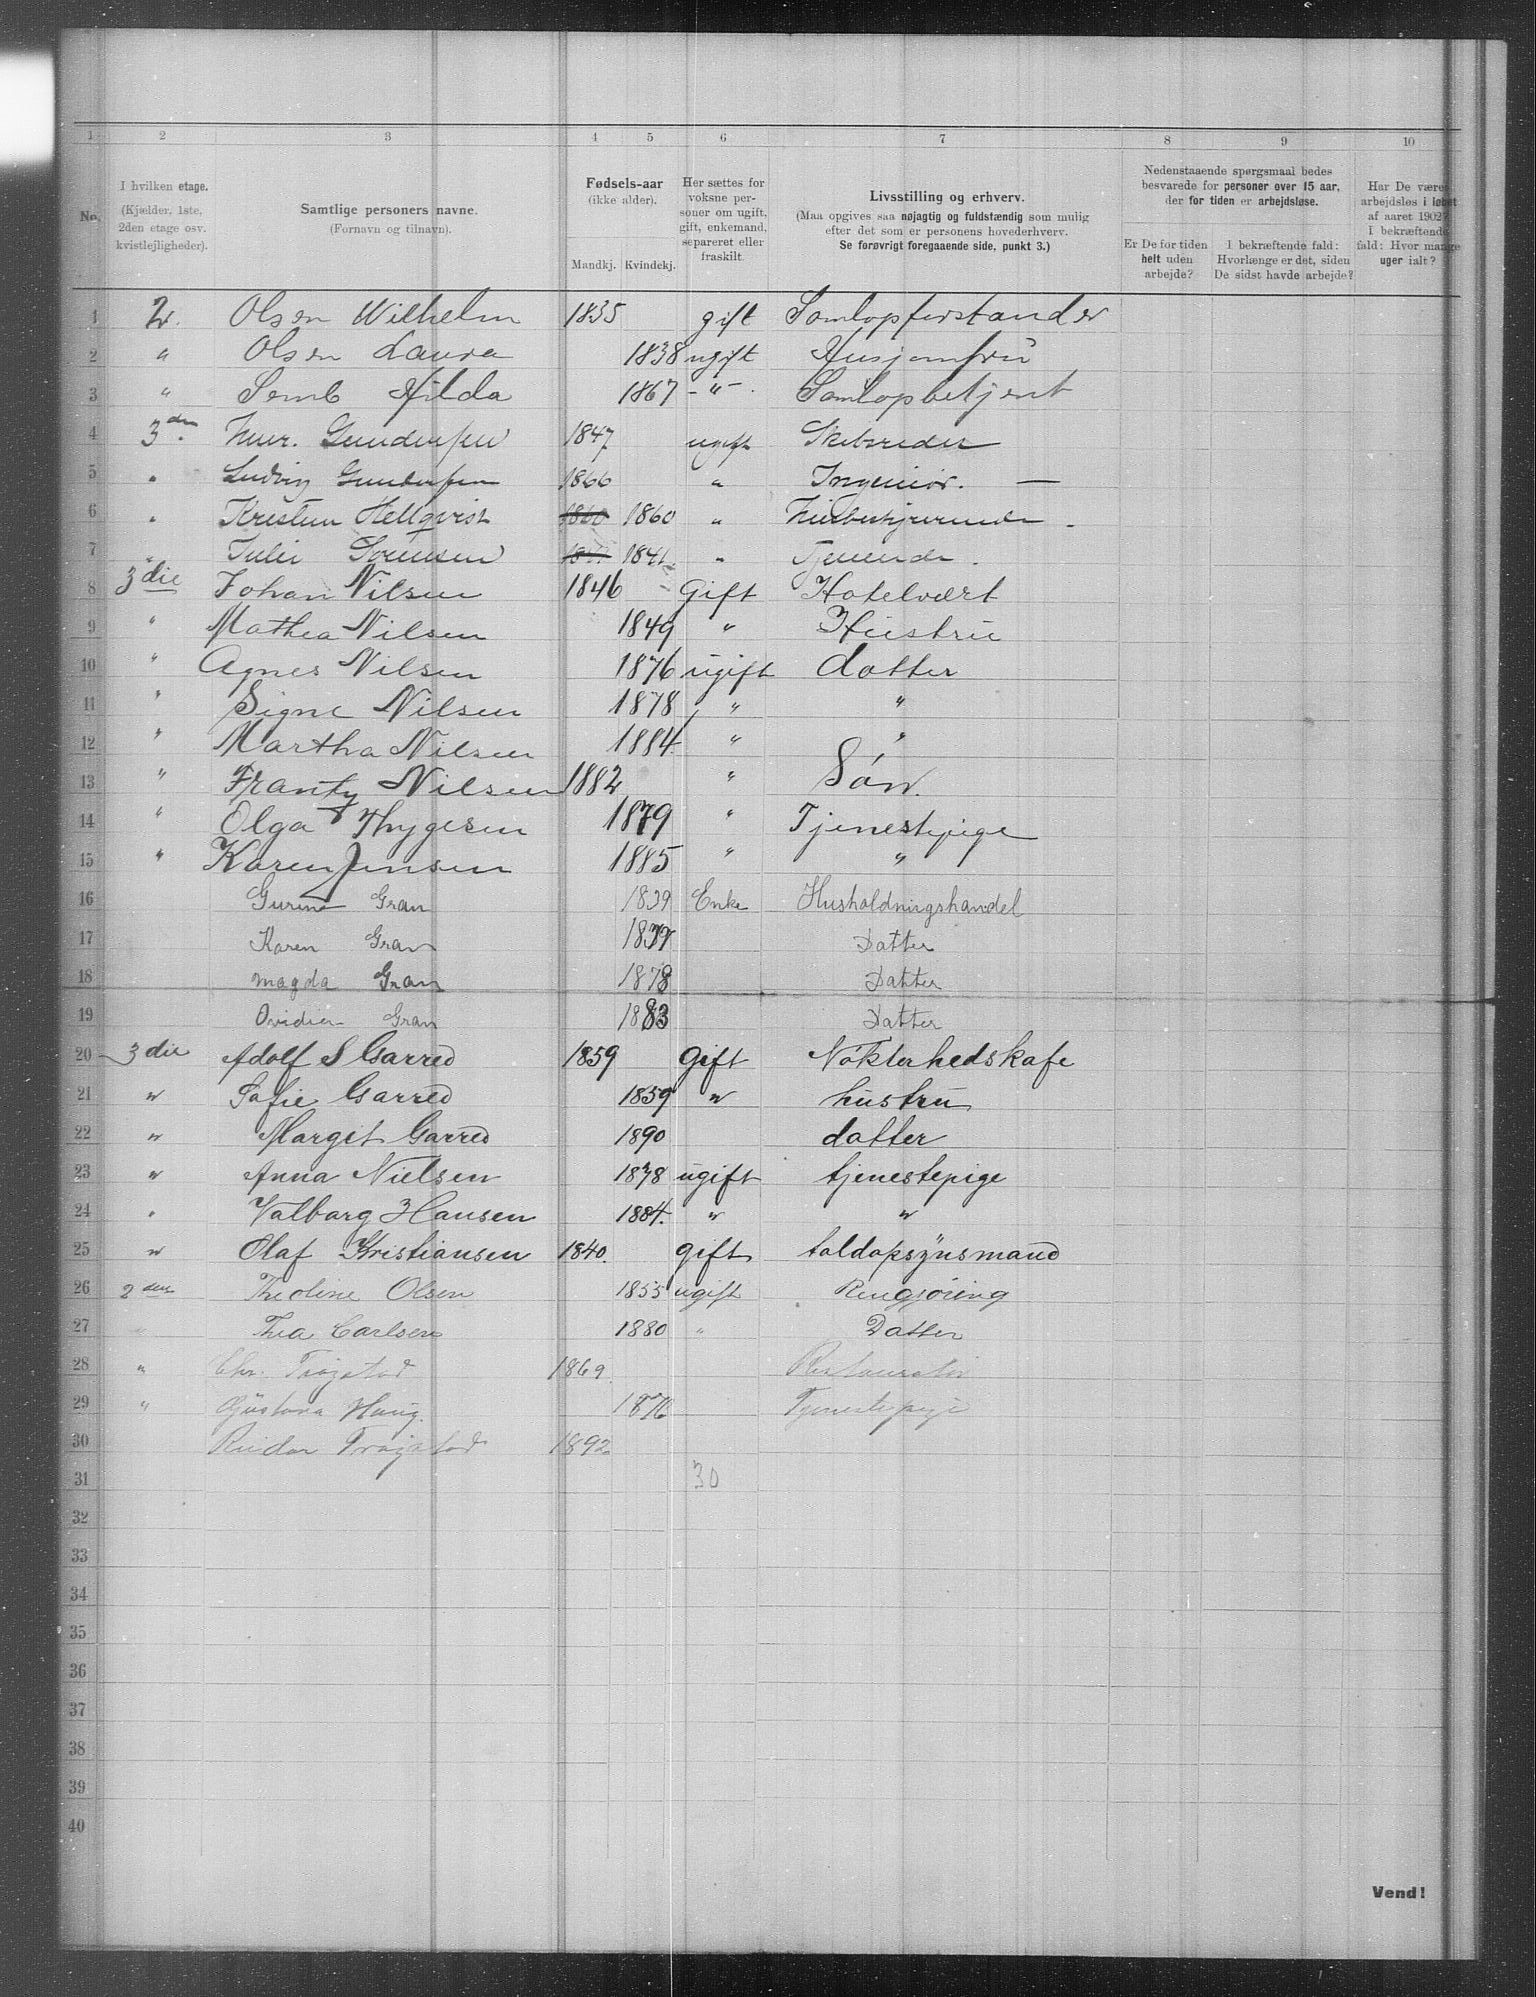 1 2 3 4 5 6 7 8 9 10
No.
I hvilken etage.
(Kjælder, 1ste,
2den etage osv.
kvistlejligheder).
Samtlige personers navne.
(Fornavn og tilnavn).
Fødsels-aar
(ikke alder).
Mandkj. Kvindekj.
Her sættes for
voksne per-
soner om ugift,
gift, enkemand,
separeret eller
fraskilt
Livsstilling og erhverv.
(Maa opgives saa nøjagtig og fuldstændig som mulig
efter det som er personens hovederhverv.
Se forøvrigt foregaaende side, punkt 3.)
Nedenstaaende spørgsmaal bedes
besvarede for personer over 15 aar,
der for tiden er arbejdsløse.
Er De for tiden
helt uden
arbejde?
I bekræftende fald:
Hvorlænge er det, siden
De sidst havde arbejde?
Har De været
arbejdsløs i løbet
af aaret 1902?
I bekræftende
fald: Hvor mange
uger ialt?
1 2. Olsen Wilhelm 1835 gift Samlopforstander
2 " Olsen Laura 1838 ugift Husjomfru
3 " Semb Hilda 1867 - " - Samlopbetjent
4 3den Gundersen 1847 ugift Skibsreder
5 " Ludvig Gundersen 1866 " Ingeniør. —
6 " Kristun Hellqvist 1860 1860 "
7 " Julie Sørensen 1841 " Tjenende.
8 3die Johan Nilsen 1846 Gift Hotelvært
9 " Mathea Nilsen 1849 " Hustru
10 " Agnes Nilsen 1876 ugift datter
11 " Signe Nilsen 1878 " "
12 " Martha Nilsen 1884 " "
13 " Frantz Nilsen 1882 " Søn.
14 " Olga Thygesen 1879 " Tjenestepige
15 " Karen Jensen 1885 " "
16 Gurine Gran 1839 Enke Husholdningshandel
17 Karen Gran Datter
18 Magda Gran 1878 Datter
19 Ovidien Gran 1883 Datter
20 3die Adolf S Garred 1859 Gift Nökterhedskafe
21 " Sofie Garred 1859 " hustru
22 " Margit Garred 1890 datter
23 " Anna Nielsen 1878 ugift tjenestepige
24 " Valborg Hansen 1884. " "
25 " Olaf Kristiansen 1840. gift toldopsynsmand
26 2den Theoline Olsen 1855 ugift Rengjöring
27 " Thea Carlsen 1880 " Datter
28 " Chr. Trøgstad 1869. Restauratör
29 " Gustava Haug. 1876 Tjenestepige
30 Reidar Trøgstad 1892
31 30
32
33
34
35
36
37
38
39
40
Vend!